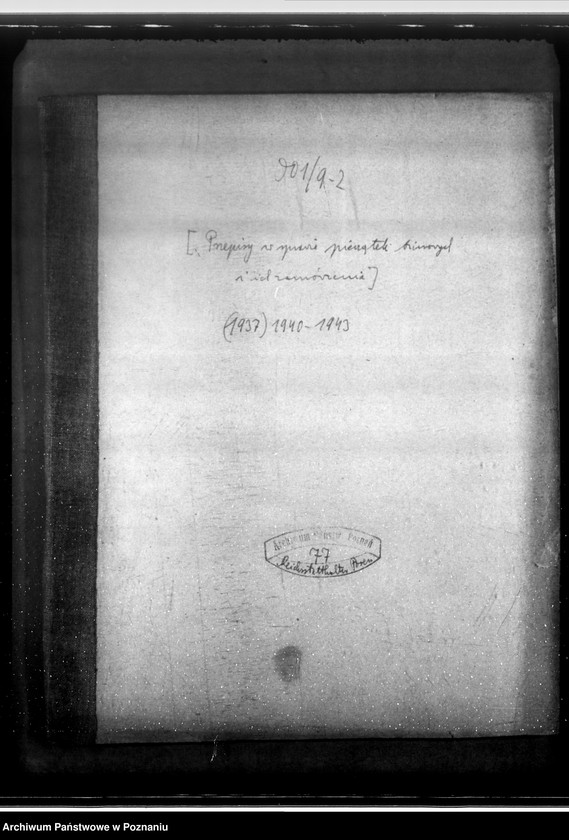 901/9-2
[Przepisy w sprawie pieczątek
i ich zamówienia]
(1937) 1940-1943
Archiwum Państw. Poznań
77
Reichsstatthalter Posen
Archiwum Państwowe w Poznaniu